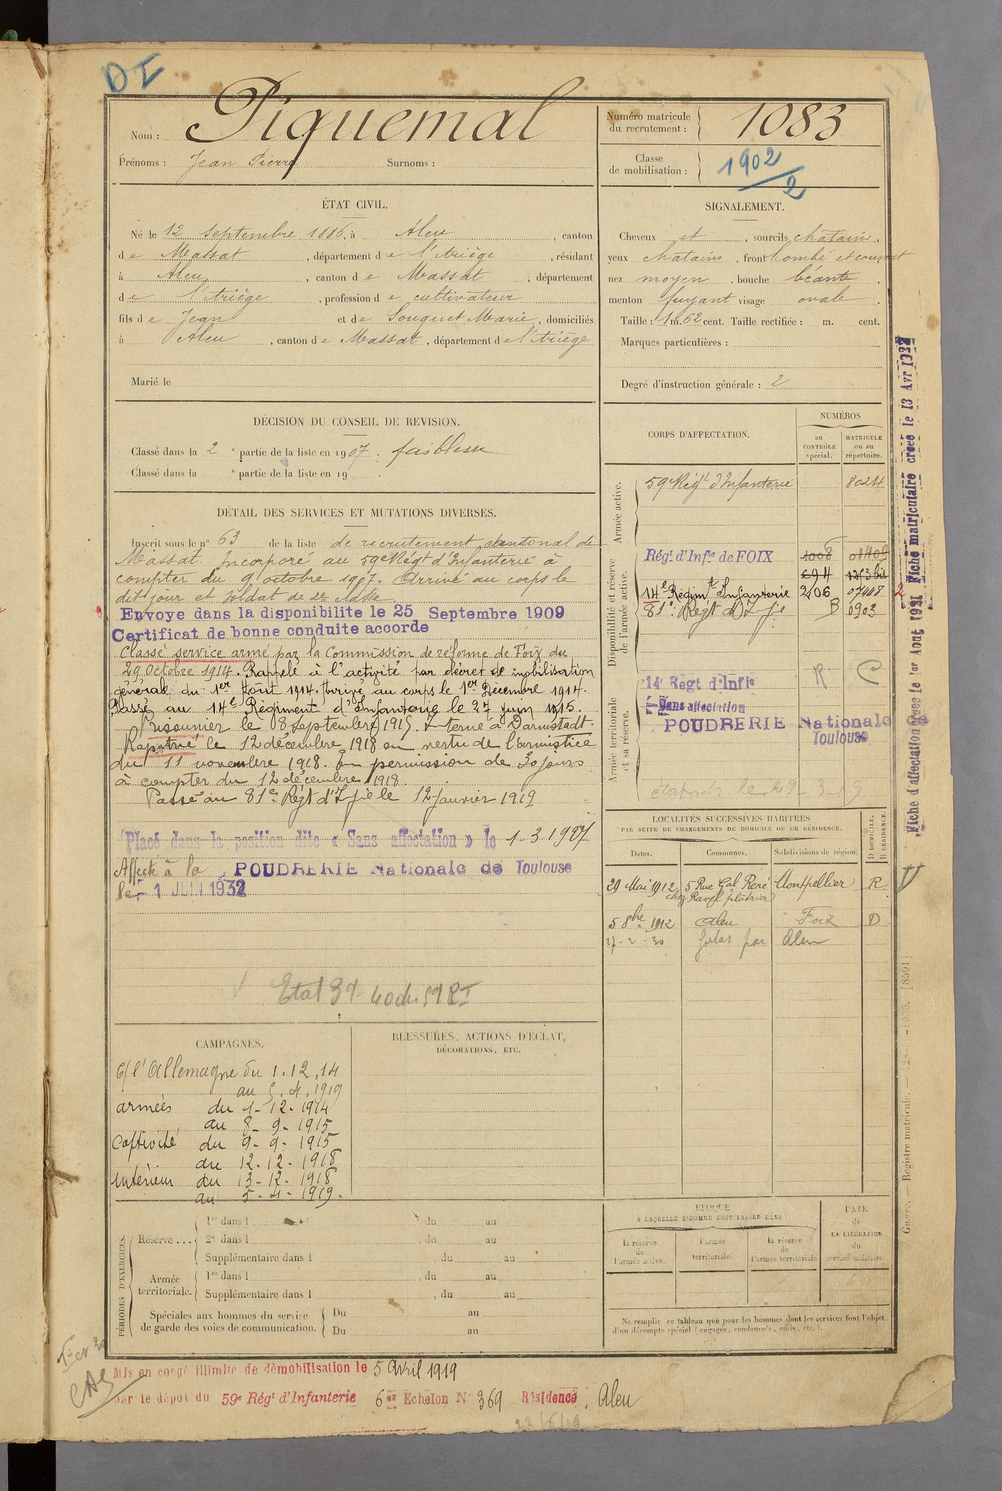 DI
Nom : Piquemal
Prénoms : Jean Pierre Surnoms :
Numéro matricule du recrutement : 1083
Classe de mobilisation : 1902/2
ÉTAT CIVIL.
Né le 12 septembre 1886, à Aleu, canton
de Massat, département de l'Ariège, résidant
à Aleu, canton de Massat, département
de l'Ariège, profession de cultivateur
fils de Jean et de Souquet Marie, domiciliés
à Aleu, canton de Massat, département de l'Ariège
Marié le
SIGNALEMENT.
Cheveux et, sourcils chatains,
yeux chatains, front bombé et
nez moyen, bouche béante,
menton fuyant visage ovale.
Taille : 1 m. 62 cent. Taille rectifiée : m. cent.
Marques particulières :
Degré d'instruction générale : 2
DÉCISION DU CONSEIL DE REVISION.
Classé dans la 2e partie de la liste en 1907. faiblesse
Classé dans la e partie de la liste en 19
DÉTAIL DES SERVICES ET MUTATIONS DIVERSES.
Inscrit sous le n° 63 de la liste de recrutement cantonal de
Massat. Incorporé au 59e Régt d'Infanterie à
compter du 9 octobre 1907. Arrivé au corps le
dit jour et soldat de 2e classe.
Envoye dans la disponibilite le 25 Septembre 1909
Certificat de bonne conduite accorde
Classé service armé par la Commission de réforme de Foix du
29 Octobre 1914. Rappelé à l'activité par décret de mobilisation
générale du 1er Août 1914. Arrivé au corps le 1er Décembre 1914.
Passé au 14e Régiment d'Infanterie le 27 juin 1915.
Prisonnier le 8 septembre 1915. Interné à Darmstadt.
Rapatrié le 12 décembre 1918 en vertu de l'armistice
du 11 novembre 1918. En permission de 30 jours
à compter du 12 décembre 1918.
Passé au 81e Régt d'Infie le 12 janvier 1919
Placé dans la position dite « Sans affectation » le 1-3-1927
Affecté à la POUDRERIE Nationale de Toulouse
le 1 JUIL 1932
CORPS D'AFFECTATION.
NUMÉROS
au CONTRÔLE spécial.
MATRICULE ou au répertoire.
Armée active.
59e Régt d'Infanterie 8024
Disponibilité et réserve de l'armée active.
Régt. d'Infie de FOIX 1008
694
14e Régimt Infanterie 2406
81e Régt d'Infie B 0903
Armée territoriale et sa réserve.
14e Regt d'Infie R C
Sans affectation
POUDRERIE Nationale de
Toulouse
LOCALITÉS SUCCESSIVES HABITÉES
PAR SUITE DE CHANGEMENTS DE DOMICILE OU DE RÉSIDENCE.
D DOMICILE. R RÉSIDENCE.
Dates. Communes. Subdivisions de région.
29 Mai 1912 5 Rue Gal René Montpellier R
chez Ravel plâtrier
5 8bre 1912 Aleu Foix D
27-2-30 Aleu
CAMPAGNES.
C/ l'Allemagne du 1.12.14
au 5.4.1919
armées du 1-12-1914
au 8-9-1915
Captivité du 9-9-1915
au 12-12-1918
Intérieur du 13-12-1918
au 5-4-1919.
BLESSURES, ACTIONS D'ÉCLAT,
DÉCORATIONS, ETC.
PÉRIODES D'EXERCICES.
Réserve ... 1re dans l , du au
2e dans l , du au
Supplémentaire dans l , du au
Armée territoriale. 1re dans l , du au
Supplémentaire dans l , du au
Spéciales aux hommes du service de garde des voies de communication. Du au
Du au
ÉPOQUE
À LAQUELLE L'HOMME DOIT PASSER DANS :
la réserve de l'armée active.
l'armée territoriale.
la réserve de l'armée territoriale
DATE de LA LIBÉRATION du service militaire.
Ne remplir ce tableau que pour les hommes dont les services font l'objet
d'un décompte spécial (engagés, condamnés, omis, etc.).
Mis en congé illimité de démobilisation le 5 Avril 1919
par le dépôt du 59e Régt d'Infanterie 6e Echelon N° 369 Résidence, Aleu
Fiche d'affectation créée le 1er Aout 1931 Fiche matriculaire créée le 13 Avr
Guerre. — Registre matricule. [8591]